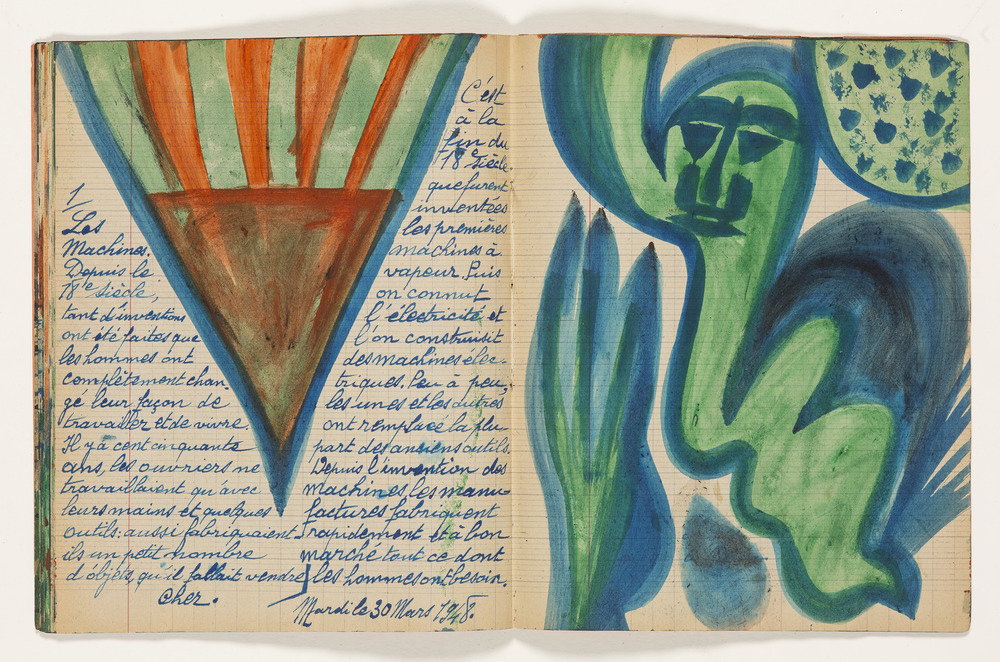 1
Les
Machines.
Depuis le
18e Siècle,
tant d'inventions
ont été faites que
les hommes ont
complètement chan-
gé leur façon de
travailler et de vivre.
Il y a cent cinquante
ans, les ouvriers ne
travaillaient qu'avec
leurs mains et quelques
outils: aussi fabriquaient
ils un petit nombre
d'objets, qu'il fallait vendre
cher.
C'est
à la
fin du
18e Siècle
que furent
inventées
les premières
machines à
vapeur. Puis
on connut
l'électricité et
l'on construisit
des machines élec-
triques. Peu à peu,
les unes et les autres
ont remplacé la plu
part des anciens outils.
Depuis l'invention des
machines, les manu-
factures fabriquent
rapidement et à bon
marché tout ce dont
les hommes ont besoin.
Mardi le 30 Mars 1948.